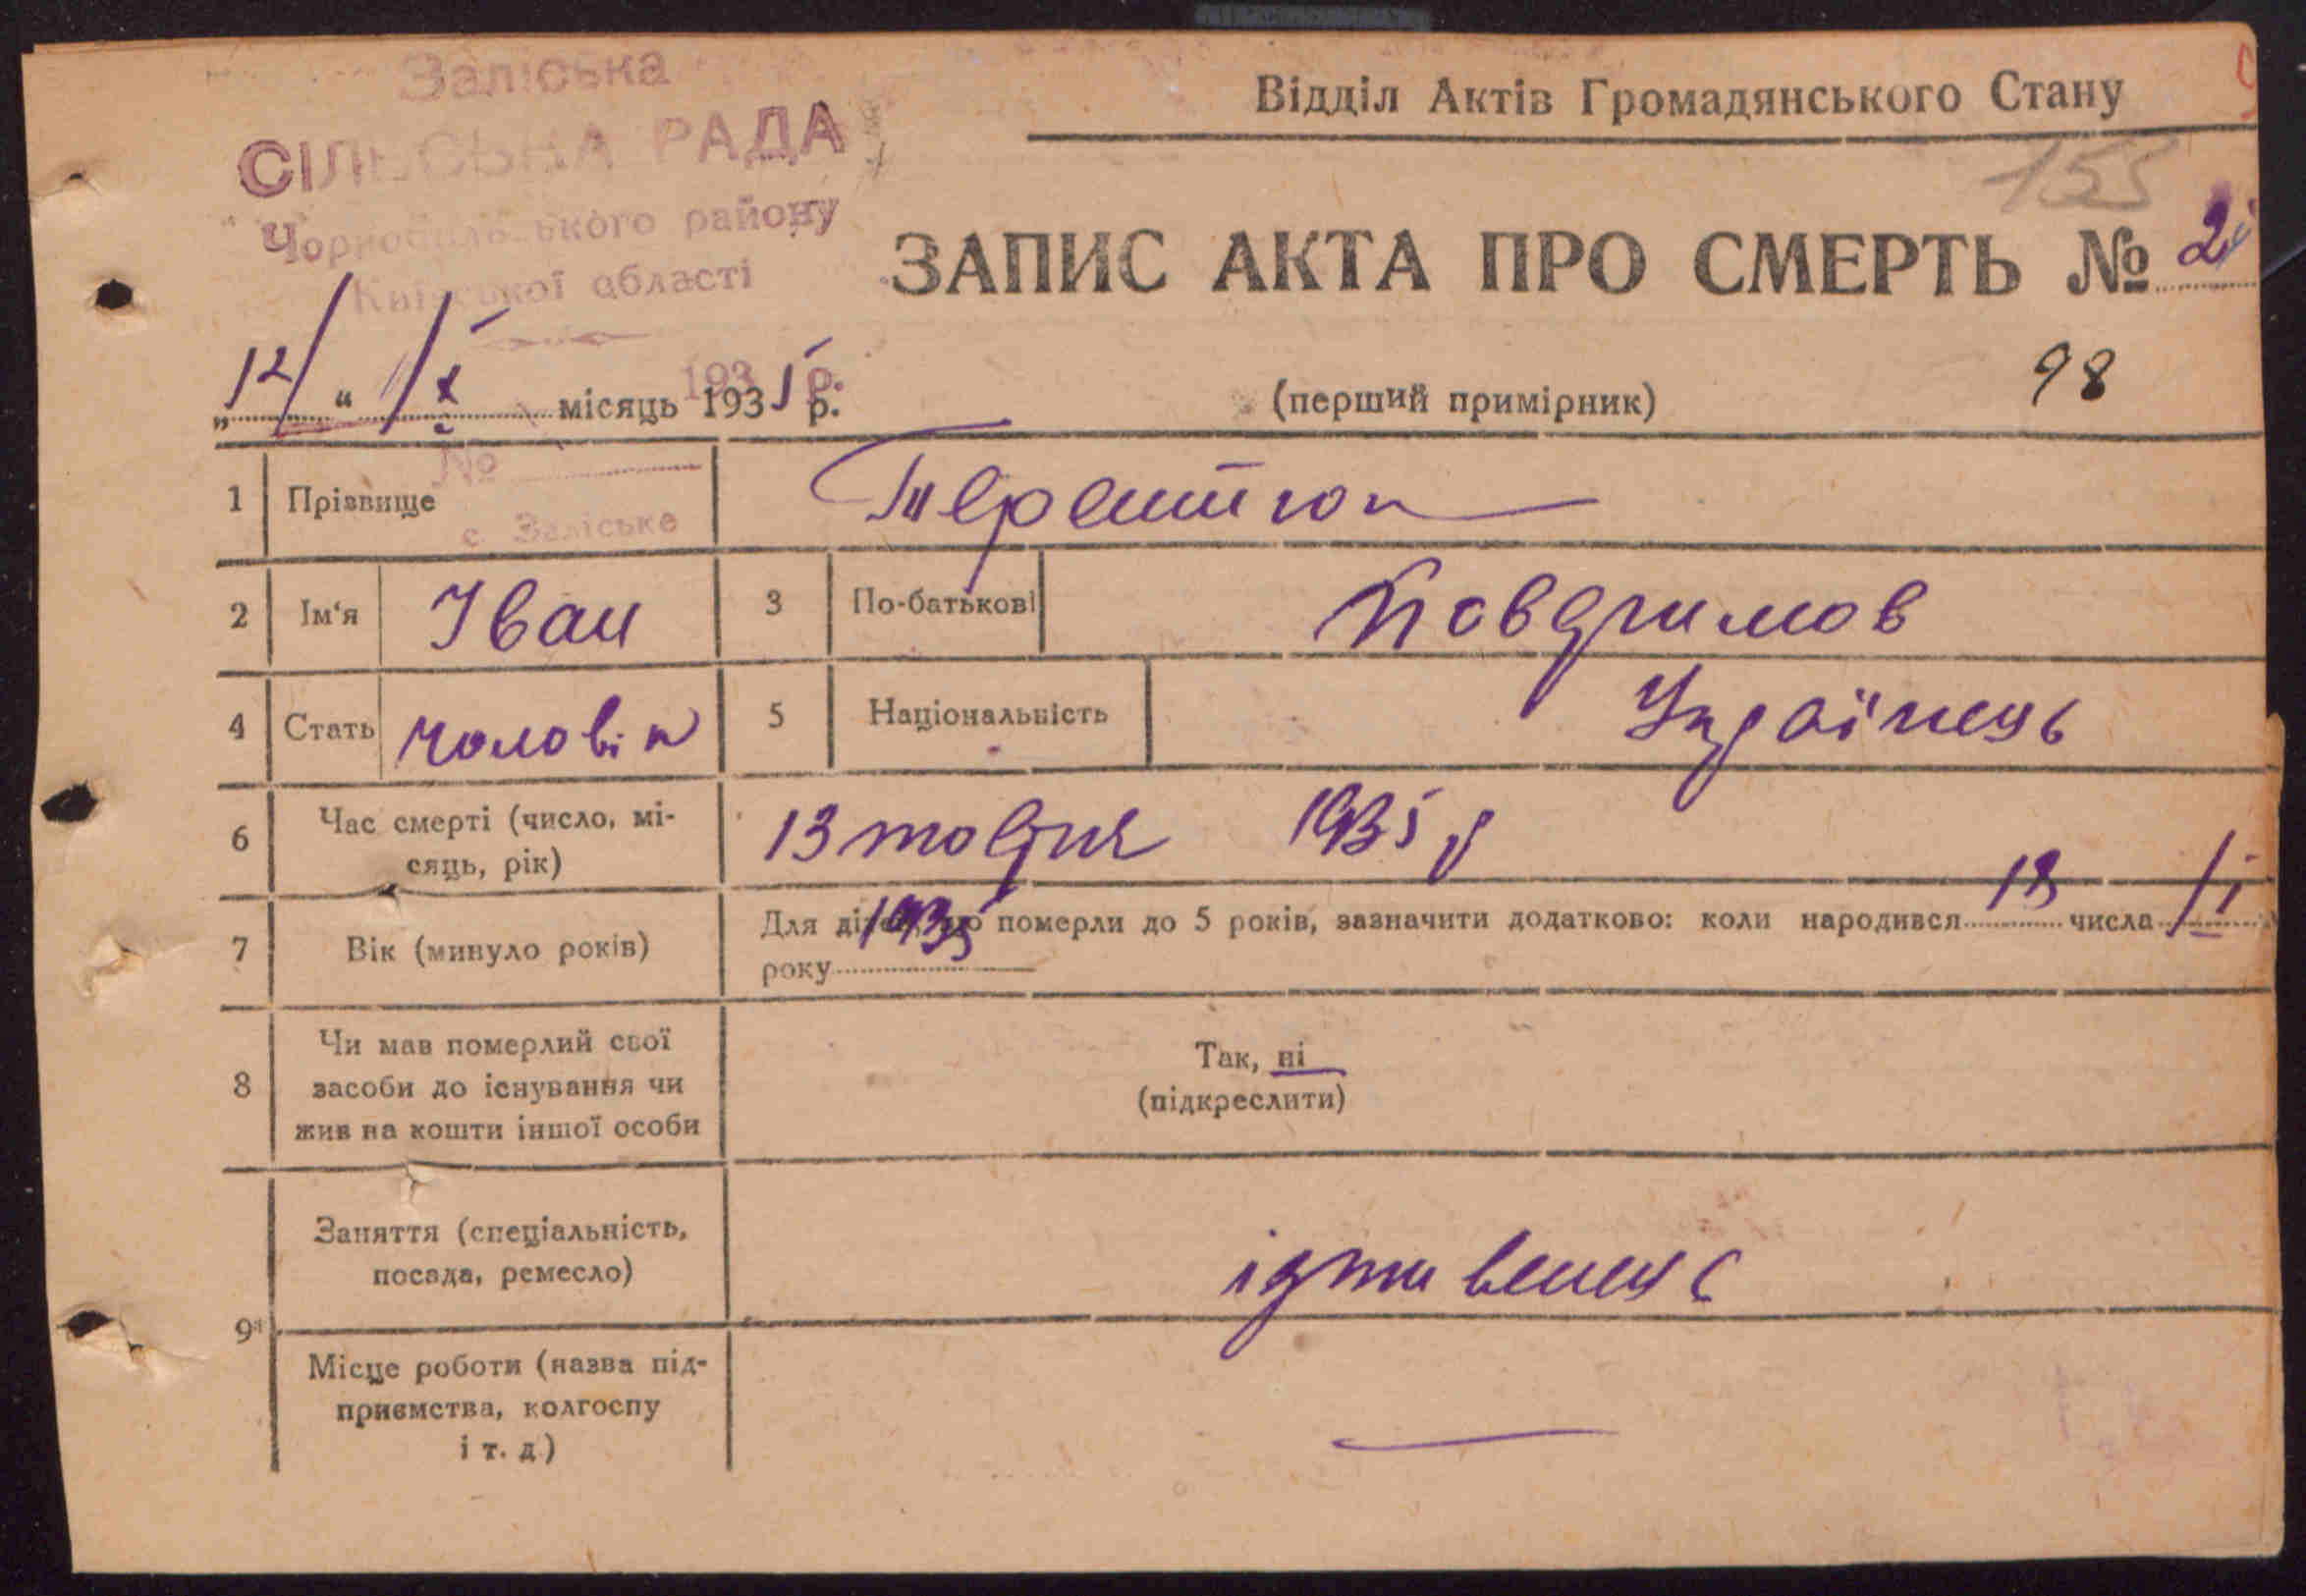 Заліська
СІЛЬСЬКА РАДА
Чорнобильського району
Київської області
Відділ Актів Громадянського Стану
155
ЗАПИС АКТА ПРО СМЕРТЬ № 2
„12/“ /X місяць 1935 р.
193 р.
(перший примірник)
98
№
с. Заліське
1 Прізвище
2 Ім'я Іван 3 По-батькові
4 Стать чоловік 5 Національність Українець
6 Час смерті (число, мі-
сяць, рік)
13 жовтня 1935 р
7 Вік (минуло років)
Для дітей, що померли до 5 років, зазначити додатково: коли народився 13 числа
року 1935
8 Чи мав померлий свої
засоби до існування чи
жив на кошти іншої особи
Так, ні
(підкреслити)
9 Заняття (спеціальність,
посада, ремесло)
Місце роботи (назва під-
приємства, колгоспу
і т. д)